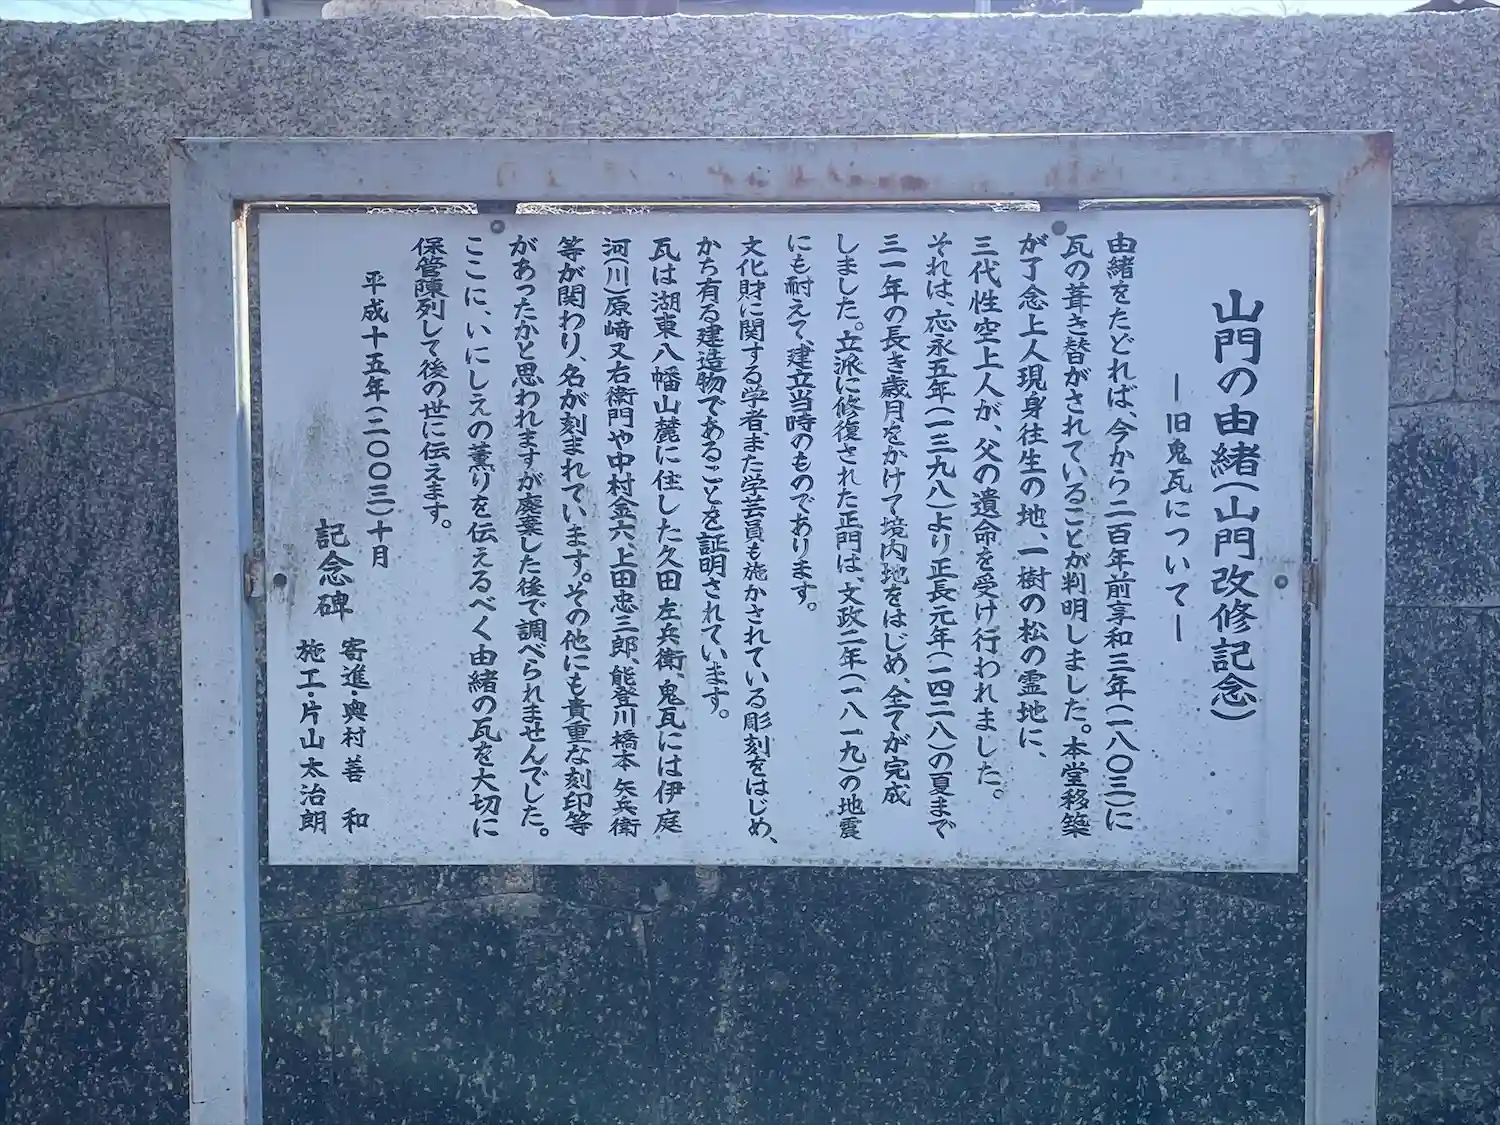 山門の由緒(山門改修記念)
―旧鬼瓦について―
由緒をたどれば、今から二百年前享和三年(一八〇三)に
瓦の葺き替がされていることが判明しました。本堂移築
が了念上人現身往生の地、一樹の松の霊地に、
三代性空上人が、父の遺命を受け行われました。
それは、応永五年(一三九八)より正長元年(一四二八)の夏まで
三一年の長き歳月をかけて境内地をはじめ、全てが完成
しました。立派に修復された正門は、文政二年(一八一九)の地震
にも耐えて、建立当時のものであります。
文化財に関する学者、また学芸員も施かされている彫刻をはじめ、
かち有る建造物であることを証明されています。
瓦は湖東八幡山麓に住した久田左兵衛、鬼瓦には伊庭
河(川)原﨑又右衛門や中村金六、上田忠三郎、能登川橋本矢兵衛
等が関わり、名が刻まれています。その他にも貴重な刻印等
があったかと思われますが廃棄した後で調べられませんでした。
ここに、いにしえの薫りを伝えるべく由緒の瓦を大切に
保管陳列して後の世に伝えます。
平成十五年(二〇〇三)十月
記念碑
寄進・奥村善和
施工・片山太治朗